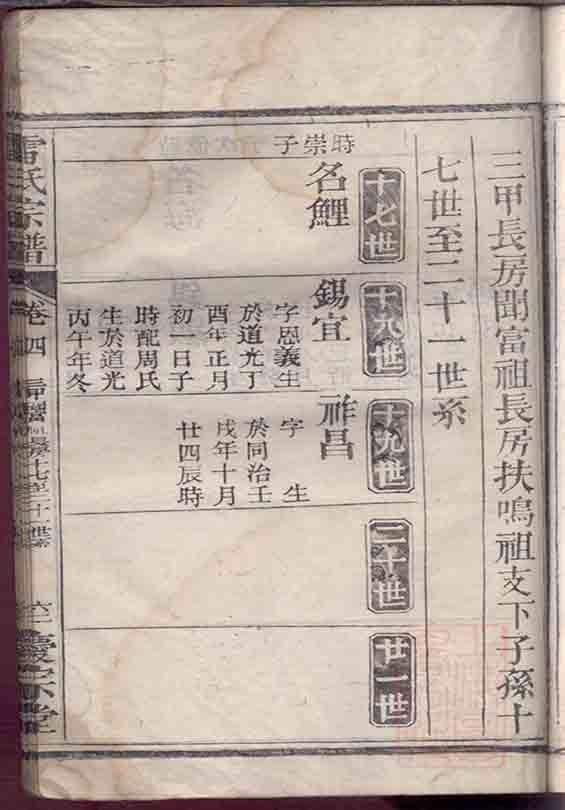 三甲長房聞富祖長房扶鳴祖支下子孫十
七世至二十一世系
十七世
時崇子
名鯉
十八世
錫宜
字恩義生
於道光丁
酉年正月
初一日子
時配周氏
生於道光
丙午年冬
十九世
祚昌
字 生
於同治壬
戌年十月
廿四辰時
二十世
廿一世
氏宗譜
卷四